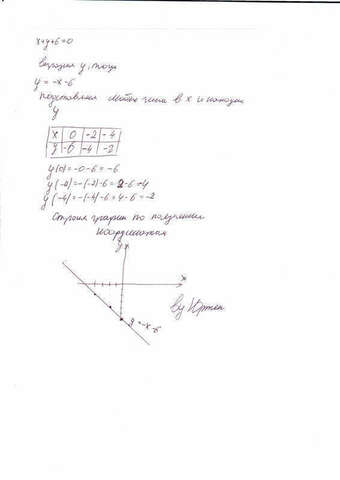 x+y+6=0
Выразим y, тогда
y = -x-6
Подставляем любые числа в x и находим
y
x 0 -2 -4
y -6 -4 -2
y(0)=-0-6=-6
y(-2)=-(-2)-6=2-6=-4
y(-4)=-(-4)-6=4-6=-2
Строим график по полученным
координатам
y
x
y=-x-6
by